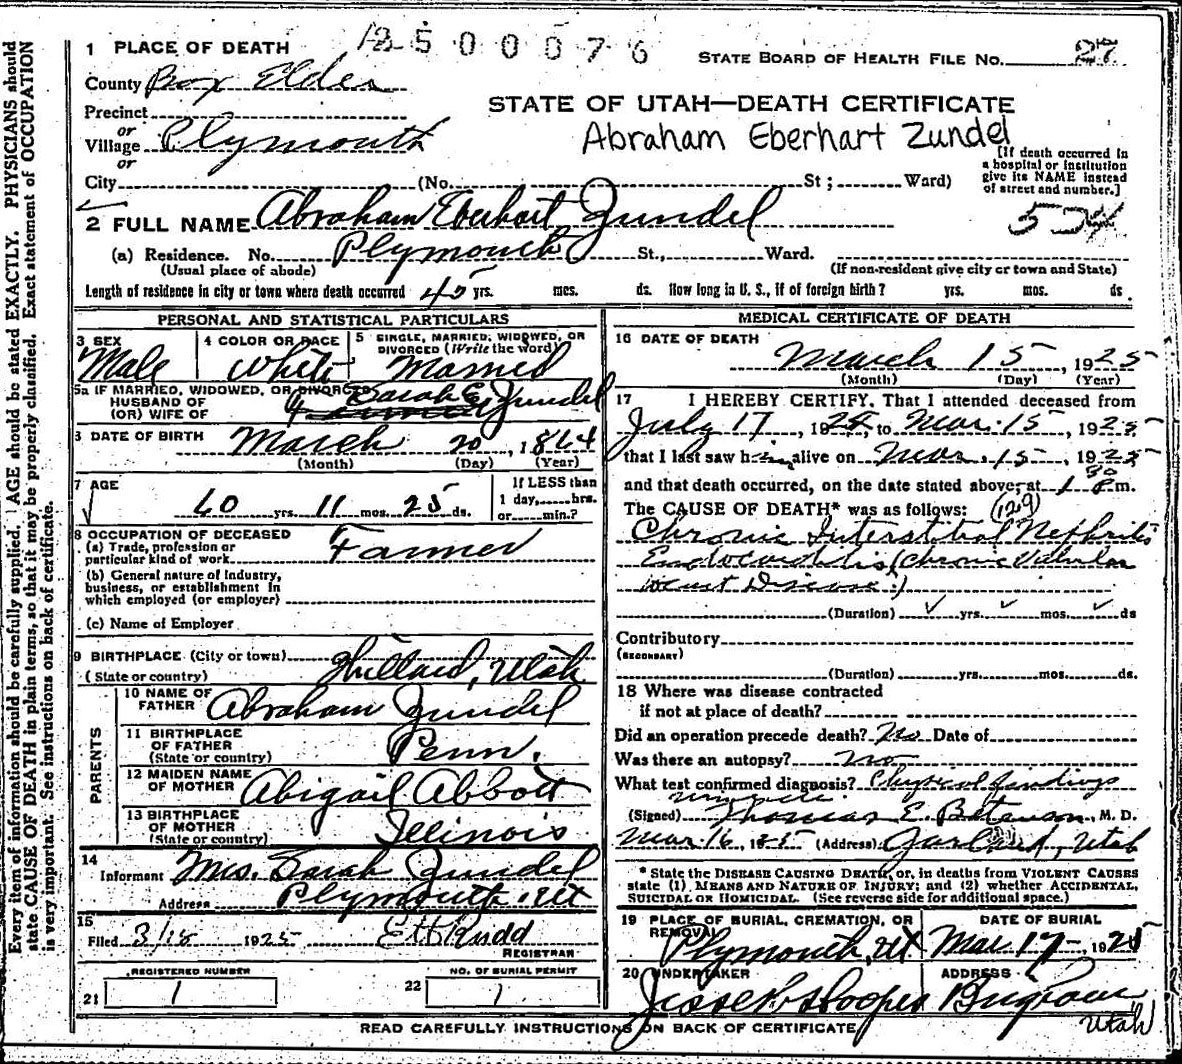 Every item of information should be carefully supplied. AGE should be stated EXACTLY. PHYSICIANS should
state CAUSE OF DEATH in plain terms, so that it may be properly classified. Exact statement of OCCUPATION
is very important. See instructions on back of certificate.
1 PLACE OF DEATH
2500076
STATE BOARD OF HEALTH FILE No. 27
County Box Elder
STATE OF UTAH—DEATH CERTIFICATE
Precinct
or
Village Plymouth
Abraham Eberhart Zundel
or
[If death occurred in
a hospital or institution
give its NAME instead
of street and number.]
City (No. St; Ward)
2 FULL NAME Abraham Eberhart Zundel
(a) Residence. No. Plymouth St., Ward.
(Usual place of abode)
(If non-resident give city or town and State)
Length of residence in city or town where death occurred 45 yrs. mos. ds. How long in U. S., if of foreign birth? yrs. mos. ds.
PERSONAL AND STATISTICAL PARTICULARS
3 SEX
Male
4 COLOR OR RACE
White
5 SINGLE, MARRIED, WIDOWED, OR
DIVORCED (Write the word)
Married
5a IF MARRIED, WIDOWED, OR DIVORCED
HUSBAND OF
(OR) WIFE OF
Sarah E. Zundel
6 DATE OF BIRTH March 20, 1864
(Month) (Day) (Year)
7 AGE
60 yrs. 11 mos. 25 ds.
If LESS than
1 day, hrs.
or min.?
8 OCCUPATION OF DECEASED
(a) Trade, profession or
particular kind of work Farmer
(b) General nature of industry,
business, or establishment in
which employed (or employer)
(c) Name of Employer
9 BIRTHPLACE (City or town)
(State or country)
Willard, Utah
PARENTS
10 NAME OF
FATHER Abraham Zundel
11 BIRTHPLACE
OF FATHER
(State or country) Penn.
12 MAIDEN NAME
OF MOTHER Abigail Abbott
13 BIRTHPLACE
OF MOTHER
(State or country) Illinois
14
Informant Mrs. Sarah Zundel
Address Plymouth, Ut
15
Filed 3/18 1925 Rudd
REGISTRAR
REGISTERED NUMBER
21 1
NO. OF BURIAL PERMIT
22 1
MEDICAL CERTIFICATE OF DEATH
16 DATE OF DEATH
March 15, 1925
(Month) (Day) (Year)
17 I HEREBY CERTIFY, That I attended deceased from
July 17, 1924, to Mar. 15, 1925
that I last saw him alive on Mar. 15, 1925
and that death occurred, on the date stated above, at 1 30 P.m.
The CAUSE OF DEATH* was as follows: (129)
Chronic Interstitial Nephritis
Endocarditis (Chronic Valvular
Heart Disease)
(Duration) yrs. mos. ds
Contributory
(SECONDARY)
(Duration) yrs. mos. ds.
18 Where was disease contracted
if not at place of death?
Did an operation precede death? No Date of
Was there an autopsy? No
What test confirmed diagnosis? Physical findings
(Signed) Thomas E. Betenson, M. D.
Mar. 16, 1925 (Address) Garland, Utah
* State the DISEASE CAUSING DEATH, or, in deaths from VIOLENT CAUSES
state (1) MEANS AND NATURE OF INJURY; and (2) whether ACCIDENTAL,
SUICIDAL OR HOMICIDAL. (See reverse side for additional space.)
19 PLACE OF BURIAL, CREMATION, OR
REMOVAL
Plymouth, Ut
DATE OF BURIAL
Mar 17 1925
20 UNDERTAKER
Hooper
ADDRESS
Brigham
Utah
READ CAREFULLY INSTRUCTIONS ON BACK OF CERTIFICATE